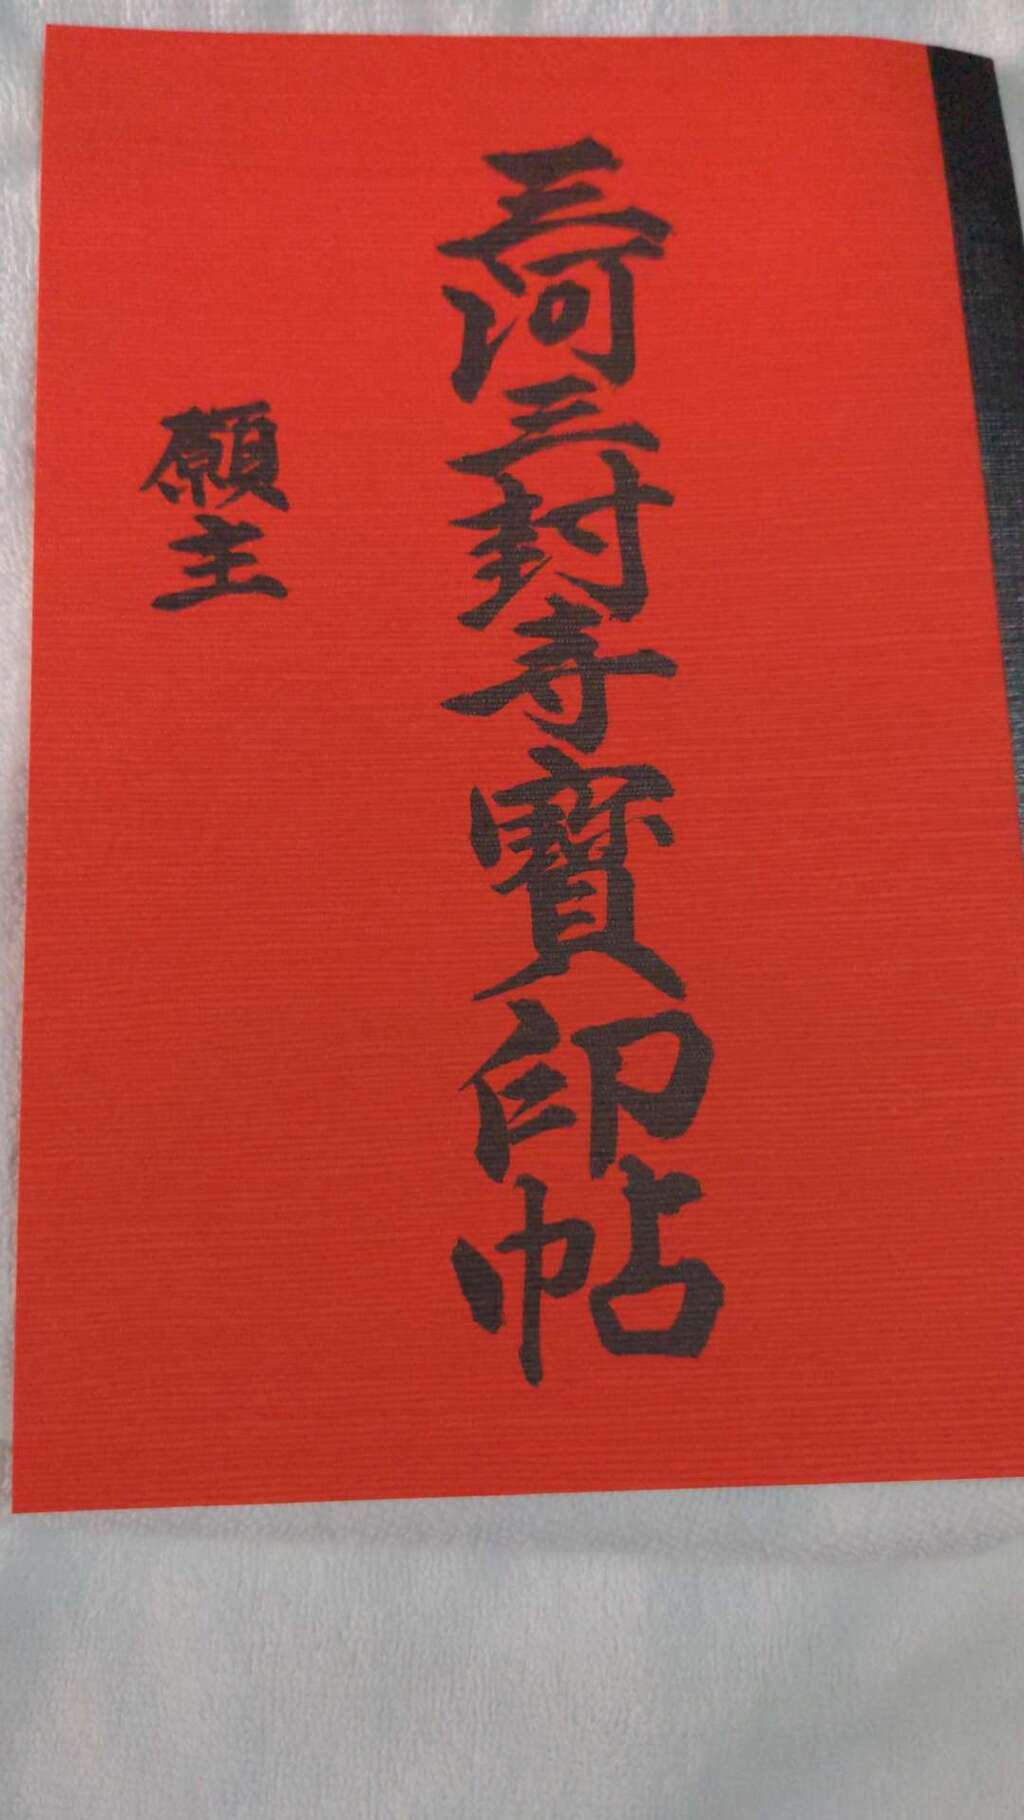 三河三封寺寳印帖
願主